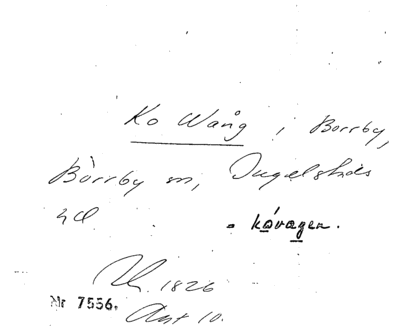 Ko Wång i Borrby,
Borrby sn, Ingelstads
hd - kóvagen.
Lh. 1826
Nr 7556. Akt 10.